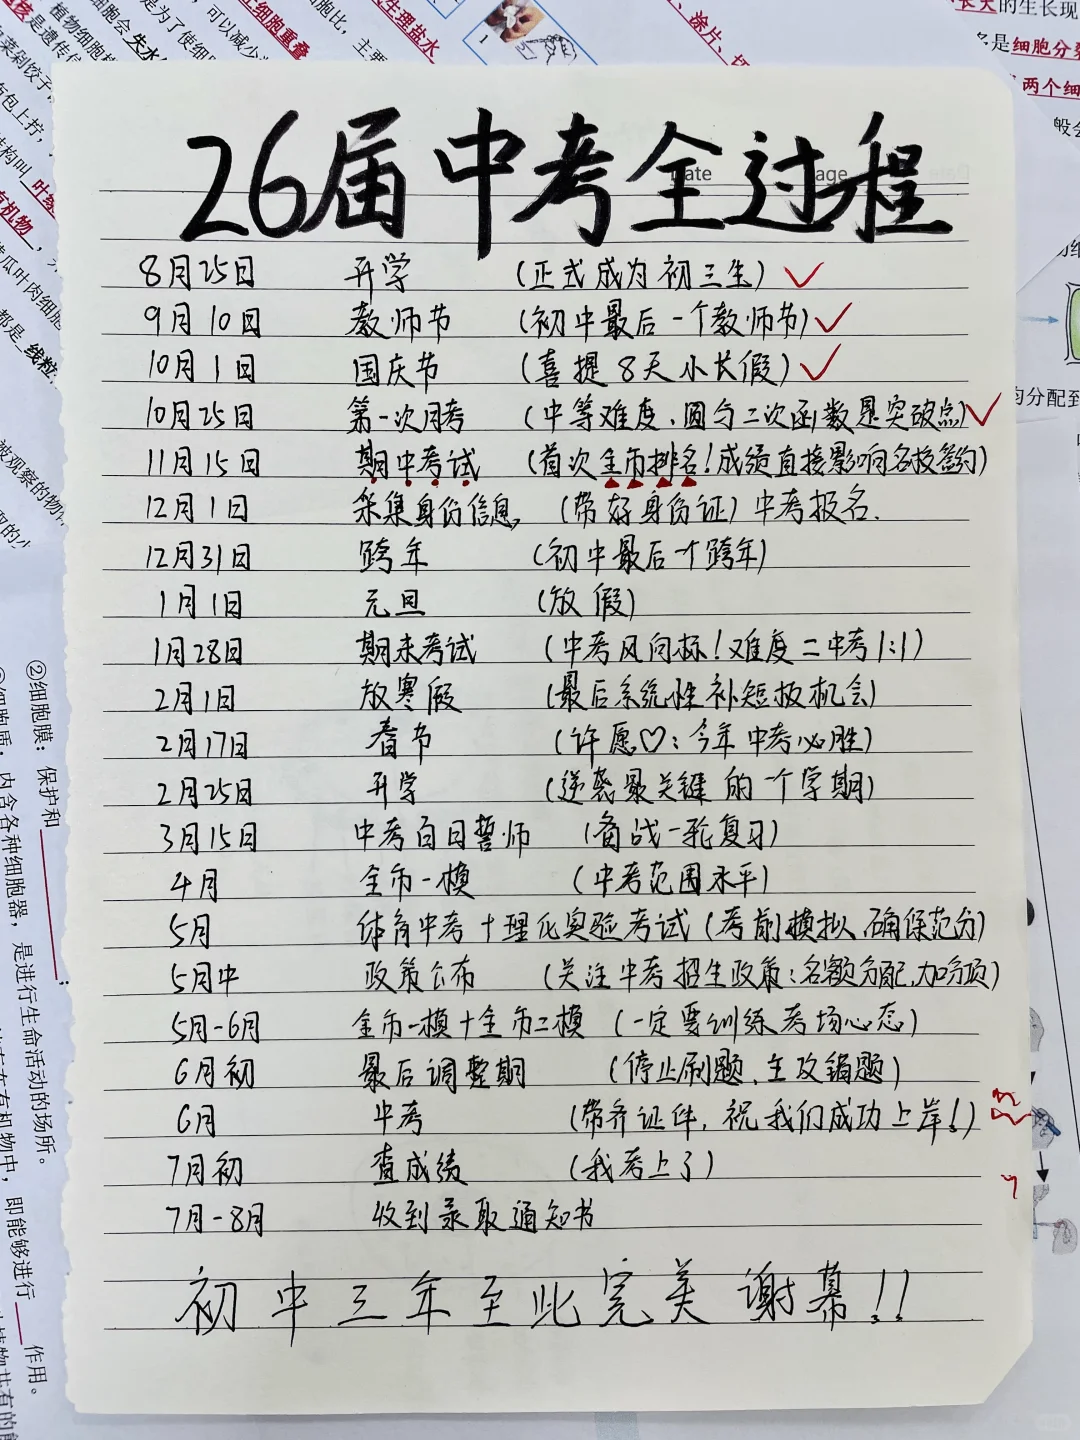 26届中考全过程
8月25日 开学 (正式成为初三生) ✓
9月10日 教师节 (初中最后一个教师节) ✓
10月1日 国庆节 (喜提8天小长假) ✓
10月25日 第一次月考 (中等难度、圆与二次函数是突破点) ✓
11月15日 期中考试 (首次全市排名!成绩直接影响名校签约)
12月1日 采集身份信息, (带好身份证) 中考报名.
12月31日 跨年 (初中最后一个跨年)
1月1日 元旦 (放假)
1月28日 期末考试 (中考风向标!难度二中考1:1)
2月1日 放寒假 (最后系统性补短板机会)
2月17日 春节 (许愿♡:今年中考必胜)
2月25日 开学 (逆袭最关键的一个学期)
3月15日 中考百日誓师 (备战一轮复习)
4月 全市一模 (中考范围水平)
5月 体育中考+理化实验考试 (考前模拟、确保范分)
5月中 政策公布 (关注中考招生政策:名额分配,加分项)
5月-6月 全市一模+全市二模 (一定要训练考场心态)
6月初 最后调整期 (停止刷题、主攻错题)
6月 中考 (带齐证件,祝我们成功上岸!)
7月初 查成绩 (我考上了)
7月-8月 收到录取通知书
初中三年至此完美谢幕!!
Date
②细胞膜:保护和
作用。
细胞重叠
生理盐水
涂片、
长大的生长现
是细胞分裂
两个细
般会
均分配到
有机物
都是线粒
瓜叶肉细胞
内含各种细胞器,是进行生命活动的场所。
即能够进行